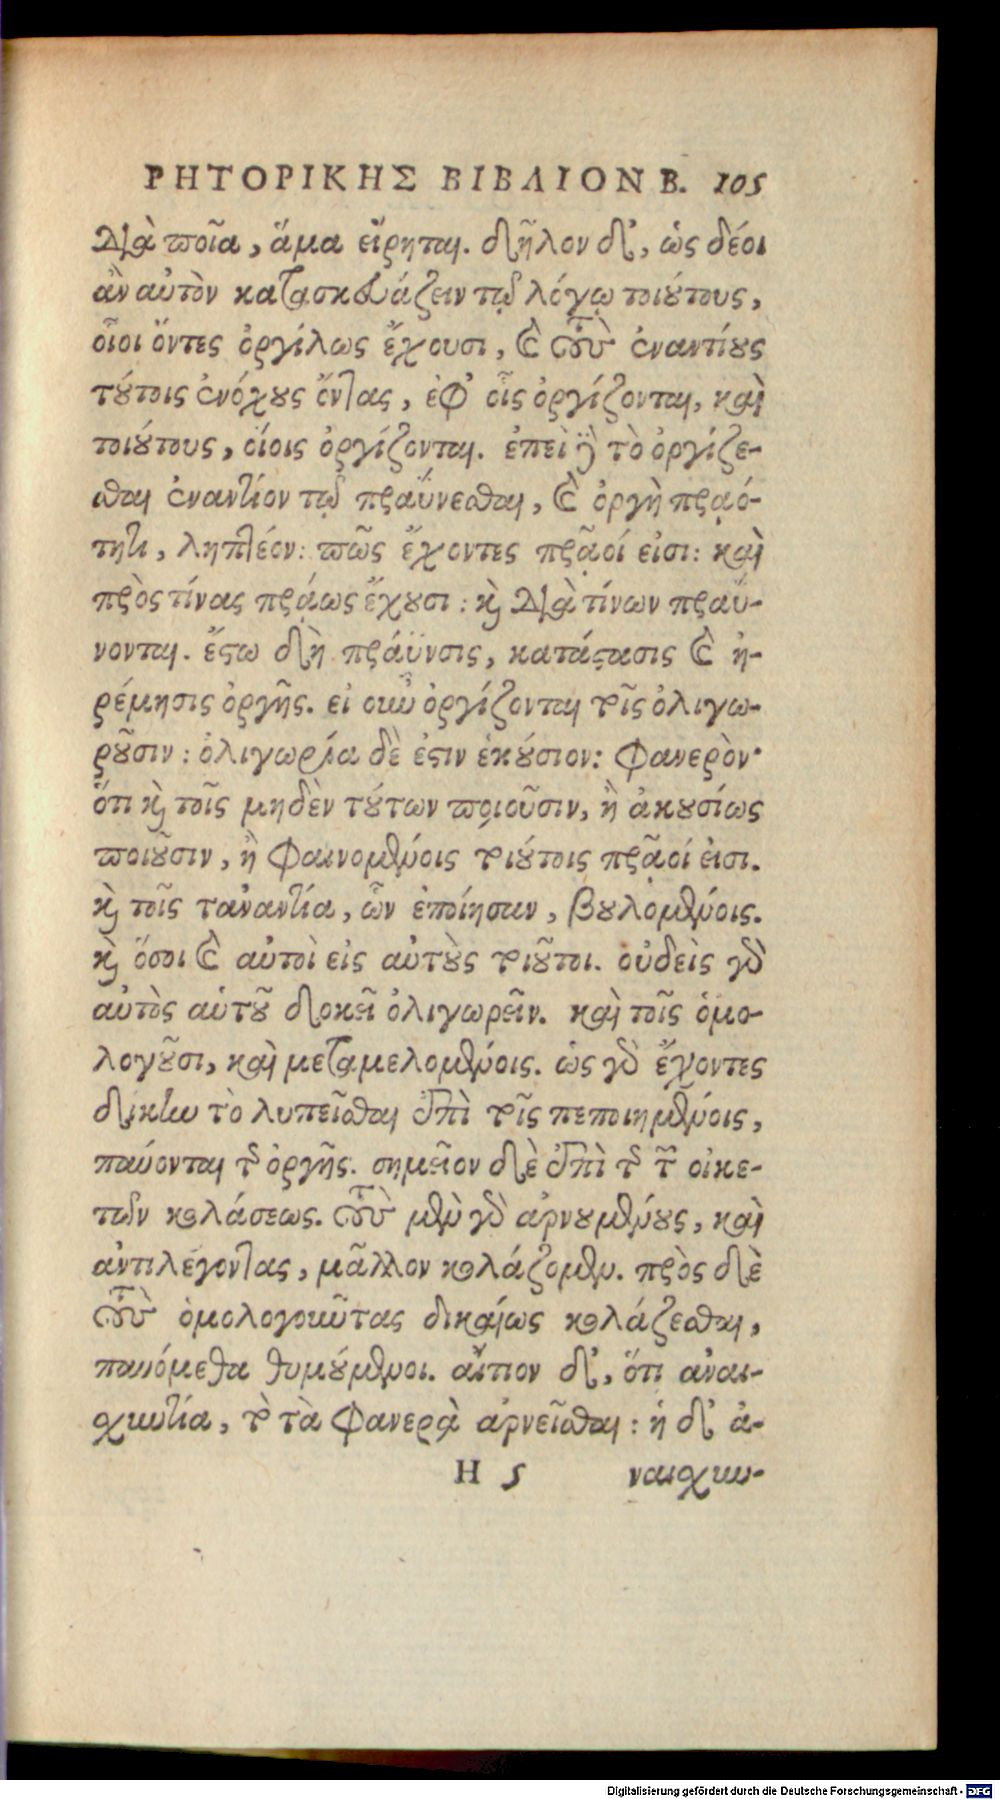 ΡΗΤΟΡΙΚΗΣ ΒΙΒΛΙΟΝ Β. 105
διὰ ποῖα, ἅμα εἴρηται. δῆλον δ', ὡς δέοι
ἂν αὐτὸν κατασκευάζειν τῷ λόγῳ τοιούτους,
οἷοι ὄντες ὀργίλως ἔχουσι, καὶ τοὺς ἐναντίους
τούτοις ἐνόχους ὄντας, ἐφ' οἷς ὀργίζονται, καὶ
τοιούτους, οἵοις ὀργίζονται. ἐπεὶ δὲ τὸ ὀργίζε-
σθαι ἐναντίον τῷ πραΰνεσθαι, καὶ ὀργὴ πραό-
τητι, ληπτέον: πῶς ἔχοντες πρᾷοί εἰσι: καὶ
πρὸς τίνας πρᾴως ἔχουσι: καὶ διὰ τίνων πραΰ-
νονται. ἔστω δὴ πράϋνσις, κατάστασις καὶ ἠ-
ρέμησις ὀργῆς. εἰ οὖν ὀργίζονται τοῖς ὀλιγω-
ροῦσιν: ὀλιγωρία δὲ ἐστιν ἑκούσιον: φανερὸν
ὅτι καὶ τοῖς μηδὲν τούτων ποιοῦσιν, ἢ ἀκουσίως
ποιοῦσιν, ἢ φαινομένοις τοιούτοις πρᾷοί εἰσι.
καὶ τοῖς τἀναντία, ὧν ἐποίησαν, βουλομένοις.
καὶ ὅσοι καὶ αὐτοὶ εἰς αὐτοὺς τοιοῦτοι. οὐδεὶς γὰρ
αὐτὸς αὑτοῦ δοκεῖ ὀλιγωρεῖν. καὶ τοῖς ὁμο-
λογοῦσι, καὶ μεταμελομένοις. ὡς γὰρ ἔχοντες
δίκην τὸ λυπεῖσθαι ἐπὶ τοῖς πεποιημένοις,
παύονται τῆς ὀργῆς. σημεῖον δὲ ἐπὶ τῆς τῶν οἰκε-
τῶν κολάσεως. τοὺς μὲν γὰρ ἀρνουμένους, καὶ
ἀντιλέγοντας, μᾶλλον κολάζομεν. πρὸς δὲ
τοὺς ὁμολογοῦντας δικαίως κολάζεσθαι,
παυόμεθα θυμούμενοι. αἴτιον δ', ὅτι ἀναι-
σχυντία, τὸ τὰ φανερὰ ἀρνεῖσθαι: ἡ δ' ἀ-
Η 5 ναισχυν-
Digitalisierung gefördert durch die Deutsche Forschungsgemeinschaft - DFG